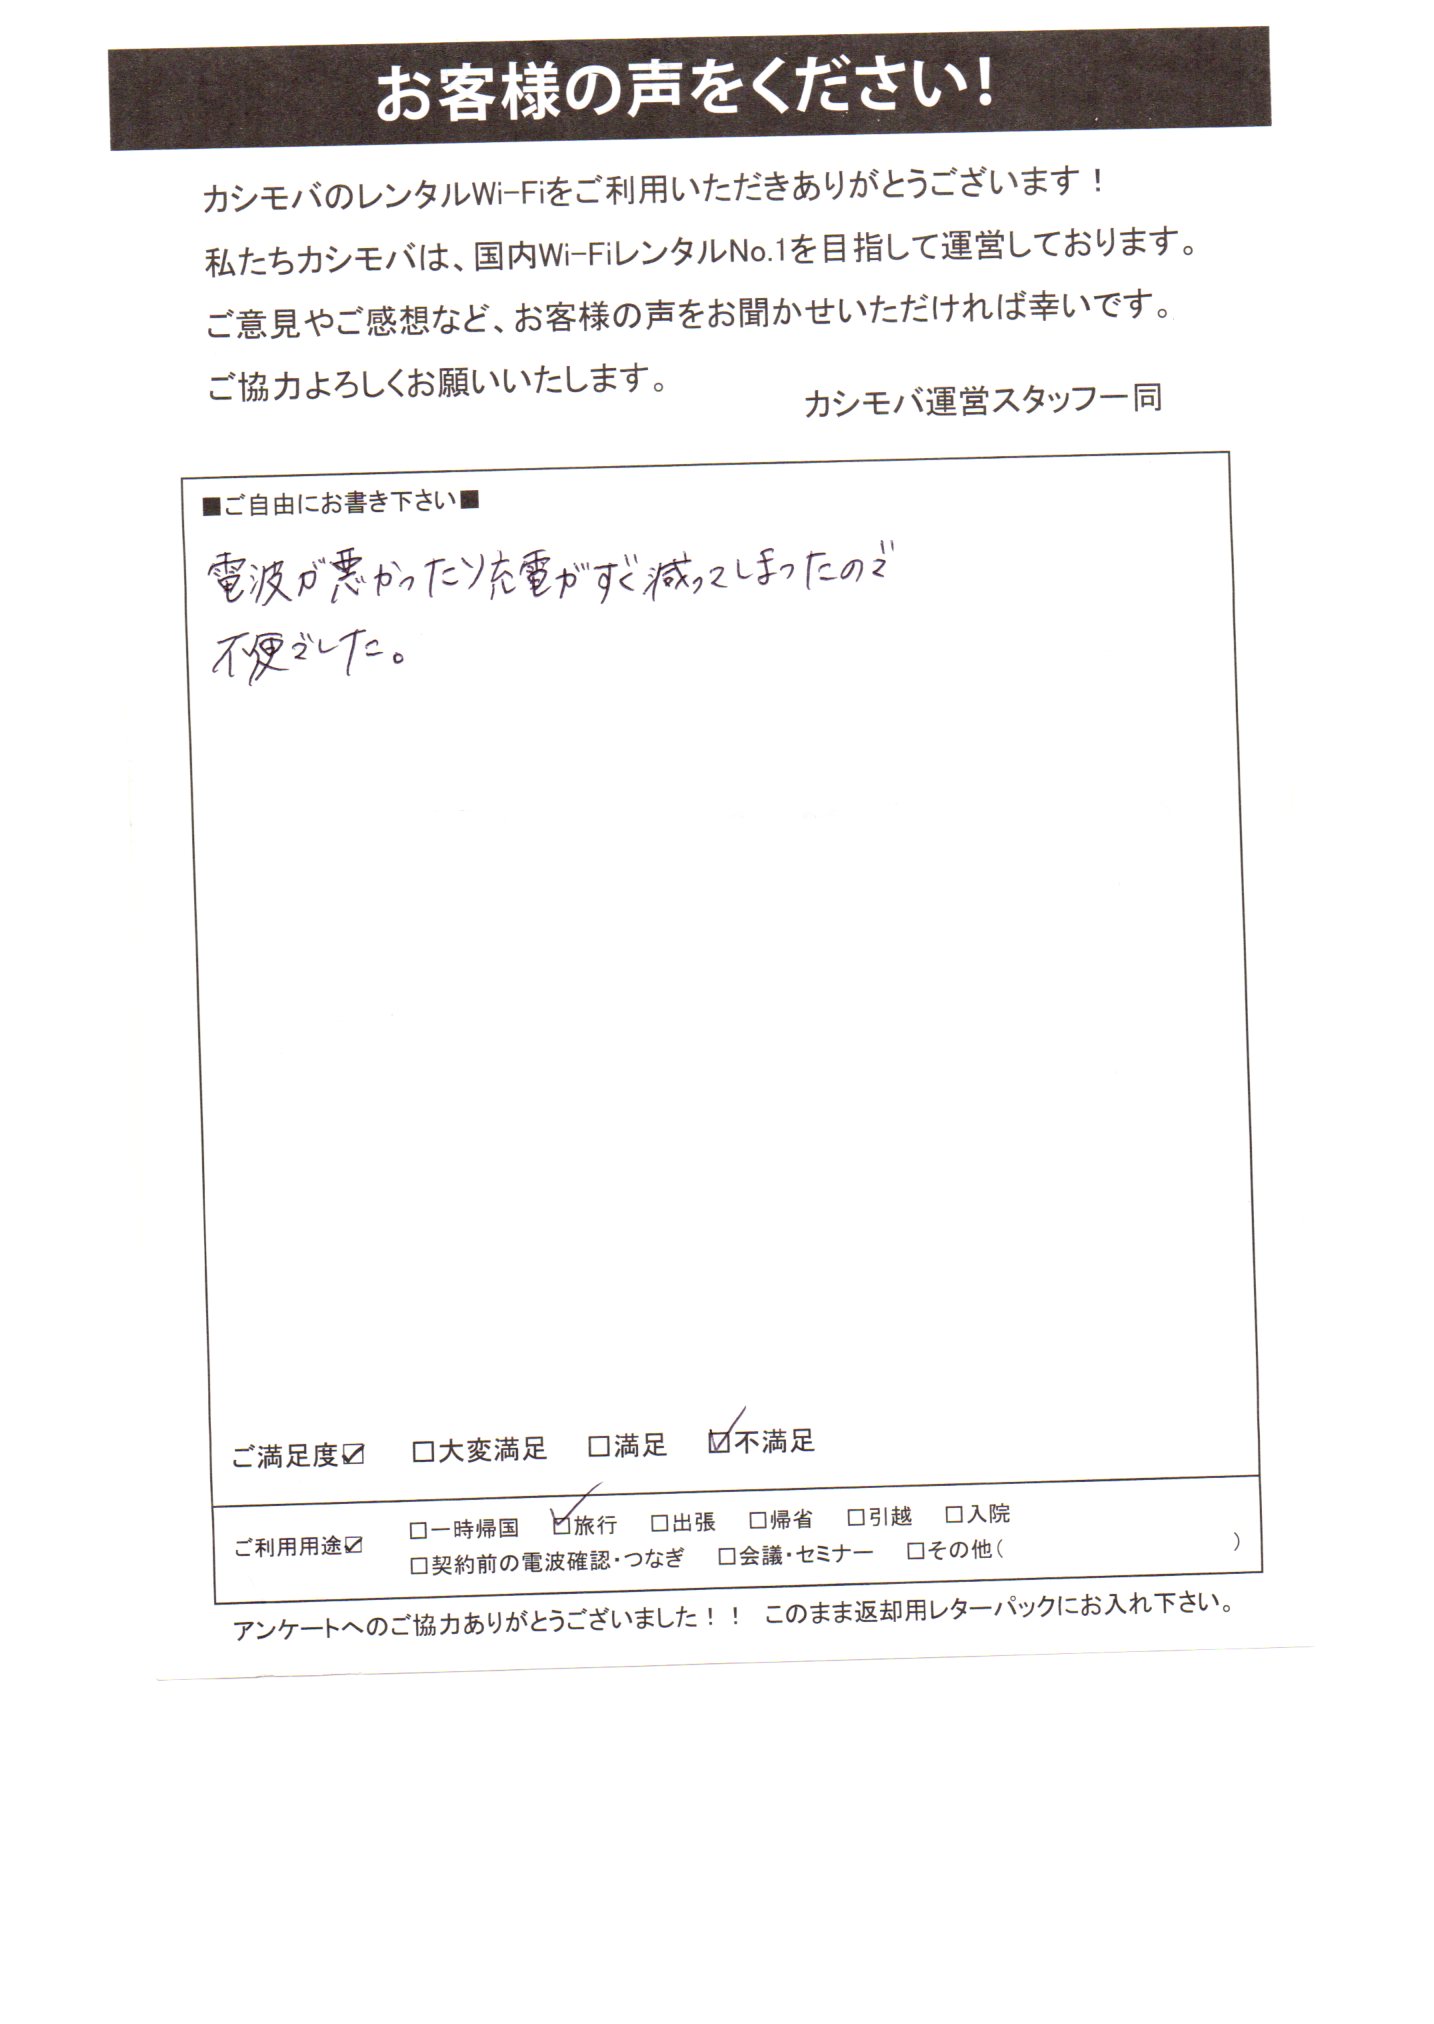 お客様の声をください!
カシモバのレンタルWi-Fiをご利用いただきありがとうございます！
私たちカシモバは、国内Wi-FiレンタルNo.1を目指して運営しております。
ご意見やご感想など、お客様の声をお聞かせいただければ幸いです。
ご協力よろしくお願いいたします。
カシモバ運営スタッフ一同
■ご自由にお書き下さい■
電波が悪かったり充電がすぐ減ってしまったので
不便でした。
ご満足度☑ □大変満足 □満足 ☑不満足
ご利用用途☑ □一時帰国 ☑旅行 □出張 □帰省 □引越 □入院
□契約前の電波確認・つなぎ □会議・セミナー □その他( )
アンケートへのご協力ありがとうございました！！ このまま返却用レターパックにお入れ下さい。